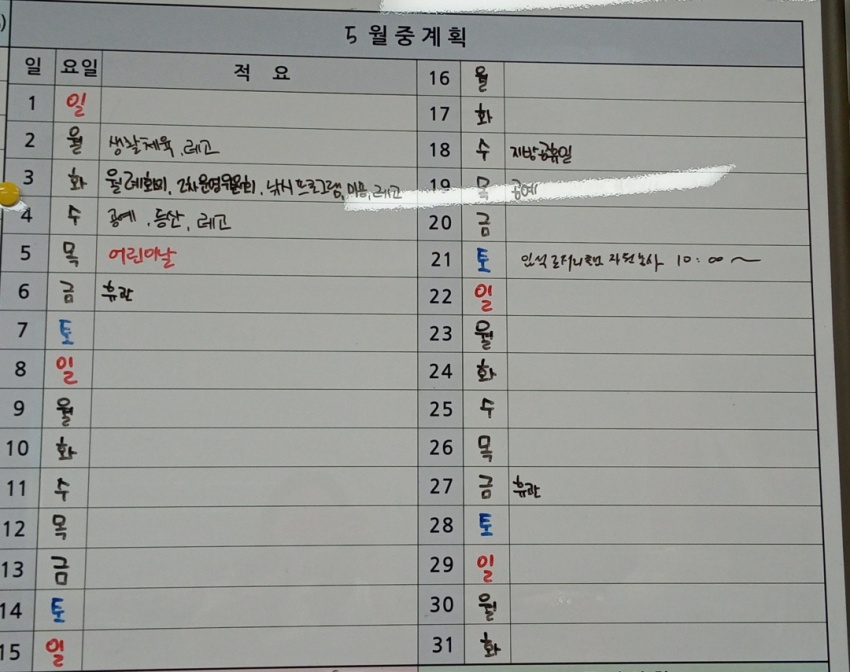 5월중계획
일 요일 적 요
1 일
2 월 생활체육, 레고
3 화 월례회의, 2차운영위원회, 낚시프로그램, 미용, 레고
4 수 공예, 등산, 레고
5 목 어린이날
6 금 휴관
7 토
8 일
9 월
10 화
11 수
12 목
13 금
14 토
15 일
16 월
17 화
18 수 지방공휴일
19 목 공예
20 금
21 토 10:00~
22 일
23 월
24 화
25 수
26 목
27 금 휴관
28 토
29 일
30 월
31 화